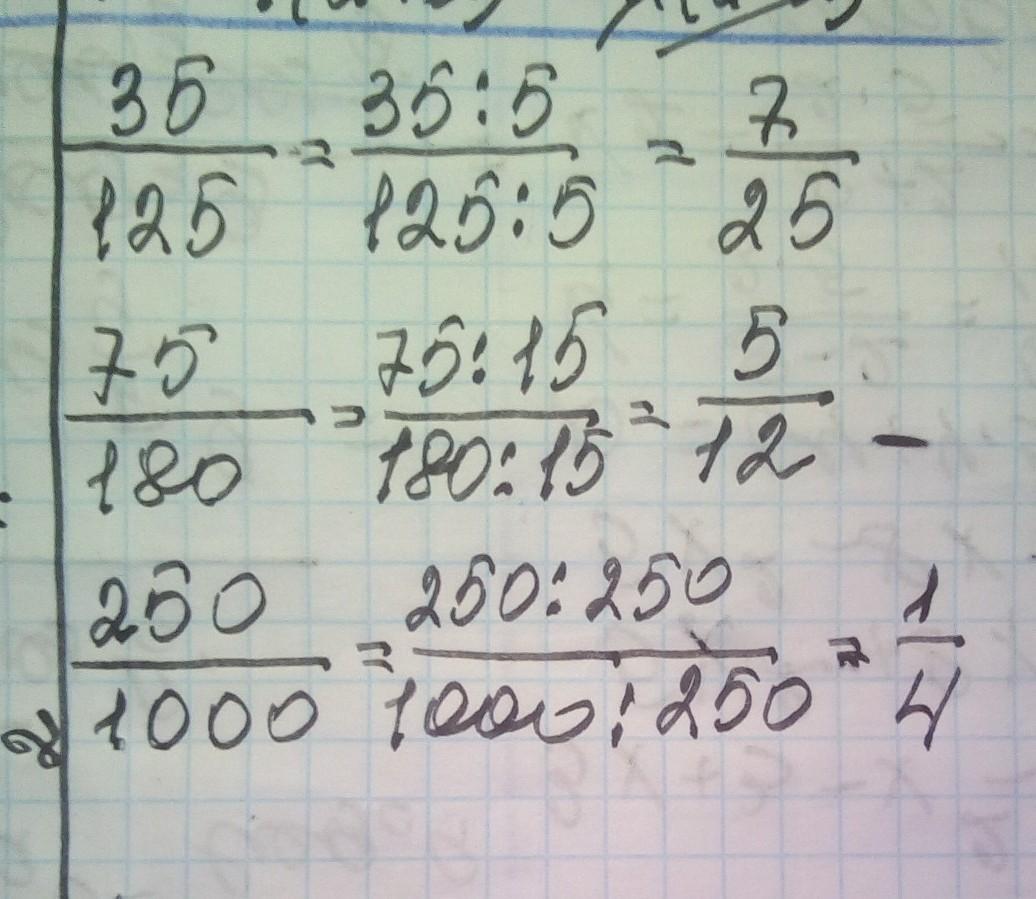 35/125 = 35:5/125:5 = 7/25
75/180 = 75:15/180:15 = 5/12 -
250/1000 = 250:250/1000:250 = 1/4